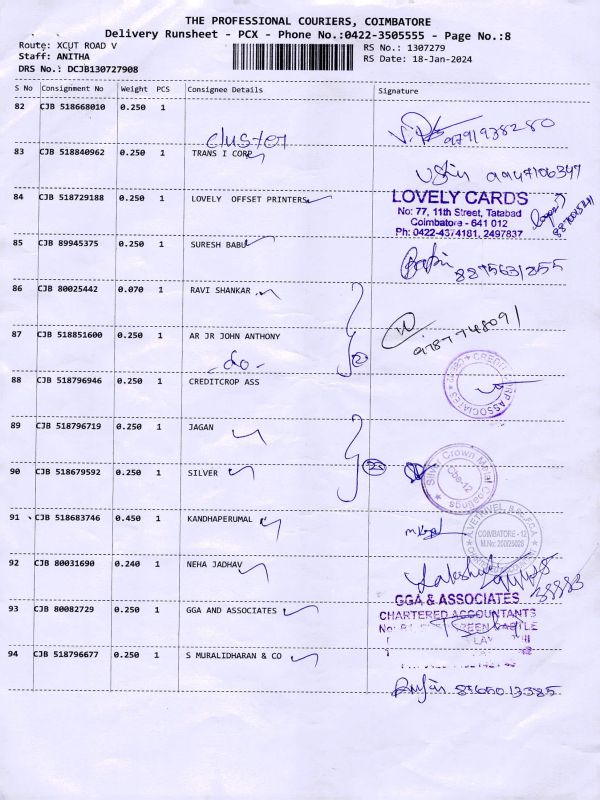 THE PROFESSIONAL COURIERS, COIMBATORE
Delivery Runsheet - PCX - Phone No.:0422-3505555 - Page No.:8
Route: XCUT ROAD V
RS No.: 1307279
Staff: ANITHA
RS Date: 18-Jan-2024
DRS No.: DCJB130727908
S No Consignment No Weight PCS Consignee Details Signature
82 CJB 518668010 0.250 1
cluster
9791938280
83 CJB 518840962 0.250 1 TRANS I CORP
9947106347
84 CJB 518729188 0.250 1 LOVELY OFFSET PRINTERS
LOVELY CARDS
No: 77, 11th Street, Tatabad
Coimbatore - 641 012
Ph: 0422-4374181, 2497837
85 CJB 89945375 0.250 1 SURESH BABU
8875631255
86 CJB 80025442 0.070 1 RAVI SHANKAR
9787748091
87 CJB 518851600 0.250 1 AR JR JOHN ANTHONY
-do-
2
88 CJB 518796946 0.250 1 CREDITCROP ASS
89 CJB 518796719 0.250 1 JAGAN
90 CJB 518679592 0.250 1 SILVER
Silver Crown Metal Coatings
Cbe-12
91 CJB 518683746 0.450 1 KANDHAPERUMAL
COIMBATORE - 12
92 CJB 80031690 0.240 1 NEHA JADHAV
93 CJB 80082729 0.250 1 GGA AND ASSOCIATES
GGA & ASSOCIATES
CHARTERED ACCOUNTANTS
94 CJB 518796677 0.250 1 S MURALIDHARAN & CO